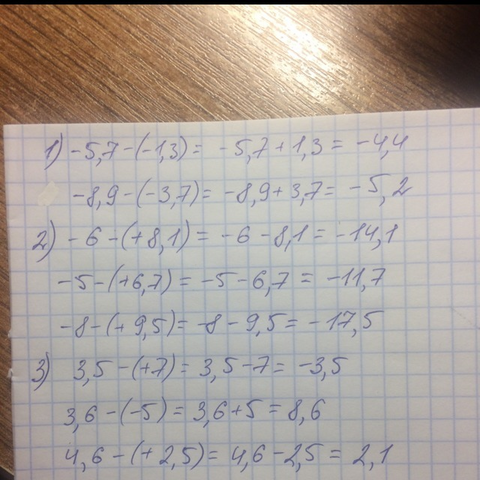 1) -5,7-(-1,3)= -5,7+1,3= -4,4
-8,9-(-3,7)= -8,9+3,7= -5,2
2) -6-(+8,1)= -6-8,1= -14,1
-5-(+6,7)= -5-6,7= -11,7
-8-(+9,5)= -8-9,5= -17,5
3) 3,5-(+7)= 3,5-7= -3,5
3,6-(-5)= 3,6+5= 8,6
4,6-(+2,5)= 4,6-2,5= 2,1